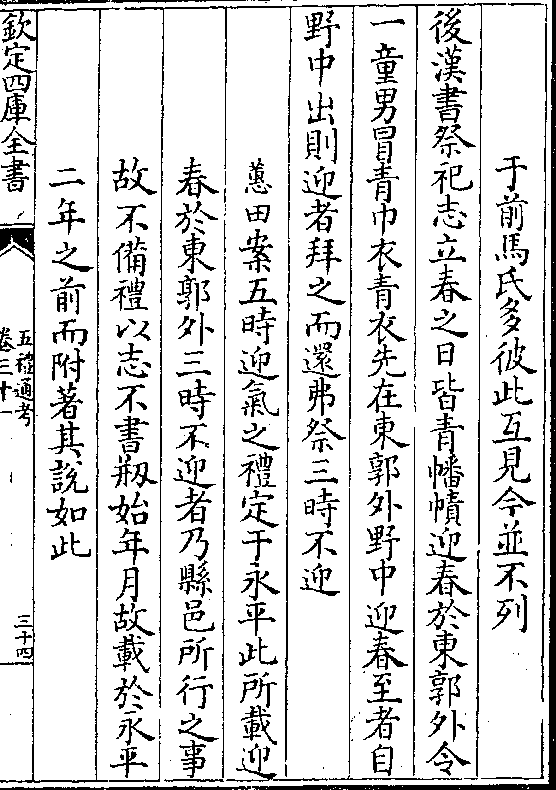 于前馬氏多彼此互見今並不列
後漢書祭祀志立春之日皆青幡幘迎春於東郭外令
一童男冒青巾衣青衣先在東郭外野中迎春至者自
野中出則迎者拜之而還弗祭三時不迎
蕙田案五時迎氣之禮定于永平此所載迎
春於東郭外三時不迎者乃縣邑所行之事
故不備禮以志不書剏始年月故載於永平
二年之前而附著其說如此
欽定四庫全書
五禮通考
卷三十一
三十四